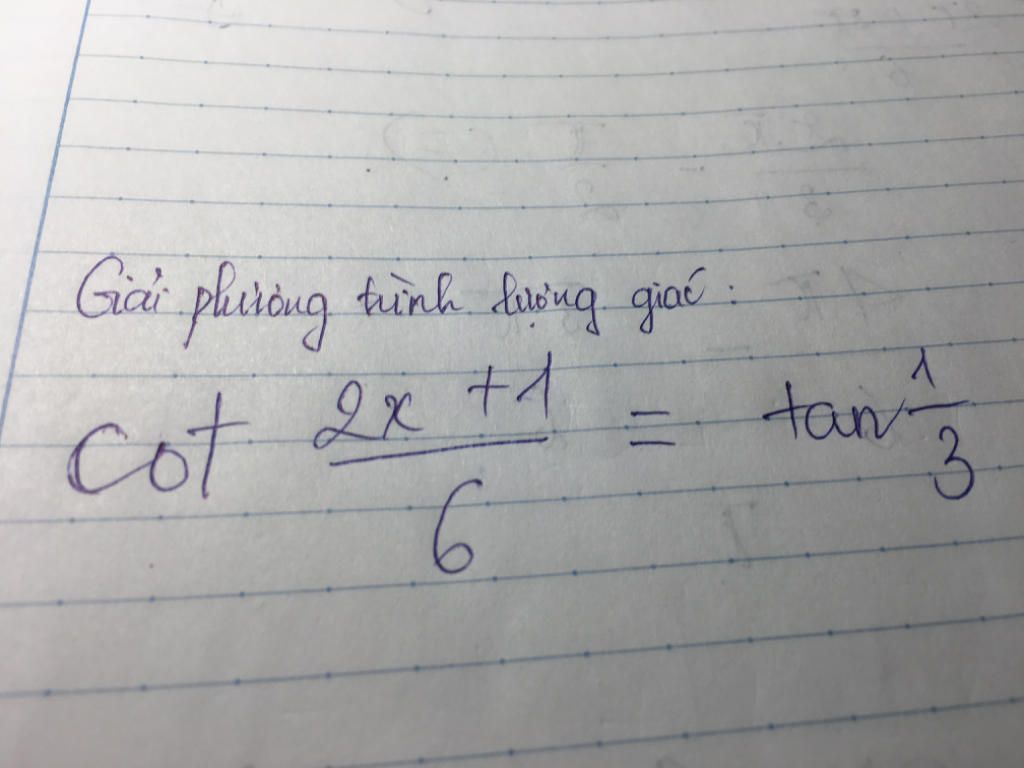 Giải phương trình lượng giác :
cot (2x + 1)/6 = tan 1/3